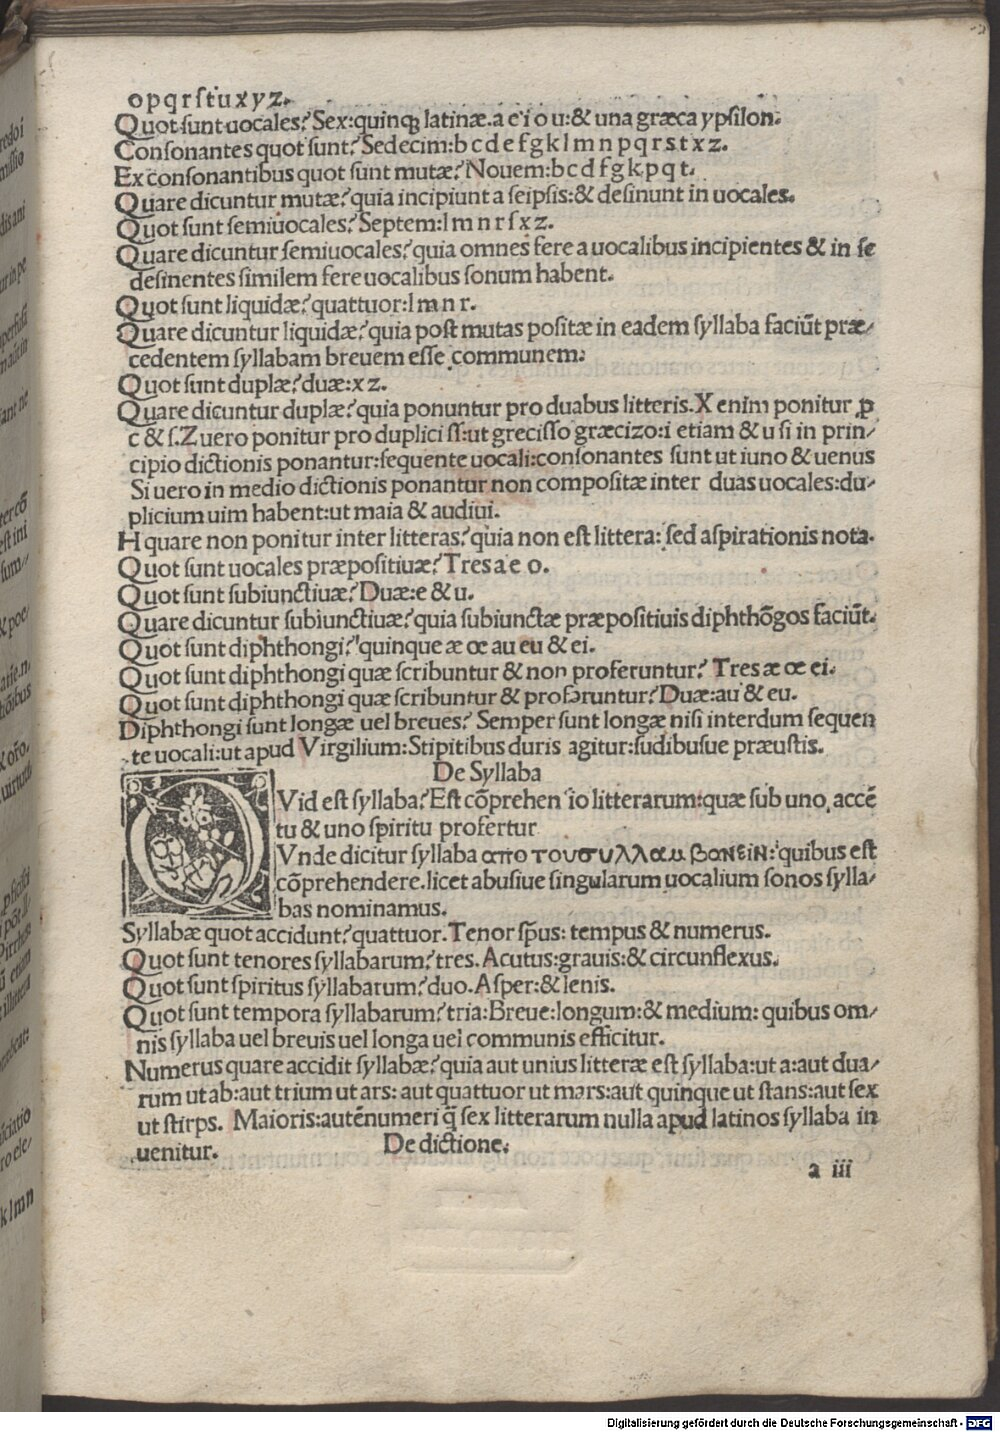 o p q r ſ t u x y z.
Quot ſunt uocales? Sex: quinqꝫ latinæ. a e i o u: & una græca ypſilon.
Conſonantes quot ſunt? Sedecim: b c d e f g k l m n p q r s t x z.
Ex conſonantibus quot ſunt mutæ? Nouem: b c d f g k p q t.
Quare dicuntur mutæ? quia incipiunt a ſeipſis: & deſinunt in uocales.
Quot ſunt ſemiuocales? Septem: l m n r ſ x z.
Quare dicuntur ſemiuocales? quia omnes fere a uocalibus incipientes & in ſe
deſinentes ſimilem fere uocalibus ſonum habent.
Quot ſunt liquidæ? quattuor: l m n r.
Quare dicuntur liquidæ? quia poſt mutas poſitæ in eadem ſyllaba faciūt præ/
cedentem ſyllabam breuem eſſe communem.
Quot ſunt duplæ? duæ: x z.
Quare dicuntur duplæ? quia ponuntur pro duabus litteris. X enim ponitur ꝓ
c & ſ. Z uero ponitur pro duplici ſſ: ut greciſſo græcizo: i etiam & u ſi in prin/
cipio dictionis ponantur: ſequente uocali: conſonantes ſunt ut iuno & uenus
Si uero in medio dictionis ponantur non compoſitæ inter duas uocales: du/
plicium uim habent: ut maia & audiui.
H quare non ponitur inter litteras? quia non eſt littera: ſed aſpirationis nota.
Quot ſunt uocales præpoſitiuæ? Tres a e o.
Quot ſunt ſubiunctiuæ? Duæ: e & u.
Quare dicuntur ſubiunctiuæ? quia ſubiunctæ præpoſitiuis diphthōgos faciūt.
Quot ſunt diphthongi? quinque æ œ au eu & ei.
Quot ſunt diphthongi quæ ſcribuntur & non proferuntur? Tres æ œ ei.
Quot ſunt diphthongi quæ ſcribuntur & proferuntur? Duæ: au & eu.
Diphthongi ſunt longæ uel breues? Semper ſunt longæ niſi interdum ſequen
te uocali: ut apud Virgilium: Stipitibus duris agitur: ſudibuſue præuſtis.
De Syllaba
QVid eſt ſyllaba? Eſt cōprehenſio litterarum: quæ ſub uno accē
tu & uno ſpiritu profertur
Vnde dicitur ſyllaba απο του συλλαμβανειν: quibus eſt
cōprehendere. licet abuſiue ſingularum uocalium ſonos ſylla/
bas nominamus.
Syllabæ quot accidunt? quattuor. Tenor ſp̄us: tempus & numerus.
Quot ſunt tenores ſyllabarum? tres. Acutus: grauis: & circunflexus.
Quot ſunt ſpiritus ſyllabarum? duo. Aſper: & lenis.
Quot ſunt tempora ſyllabarum? tria: Breue: longum: & medium: quibus om/
nis ſyllaba uel breuis uel longa uel communis efficitur.
Numerus quare accidit ſyllabæ? quia aut unius litteræ eſt ſyllaba: ut a: aut dua/
rum ut ab: aut trium ut ars: aut quattuor ut mars: aut quinque ut ſtans: aut ſex
ut ſtirps. Maioris: autēnumeri q̄ ſex litterarum nulla apud latinos ſyllaba in
uenitur. De dictione.
a iii
Digitalisierung gefördert durch die Deutsche Forschungsgemeinschaft - DFG